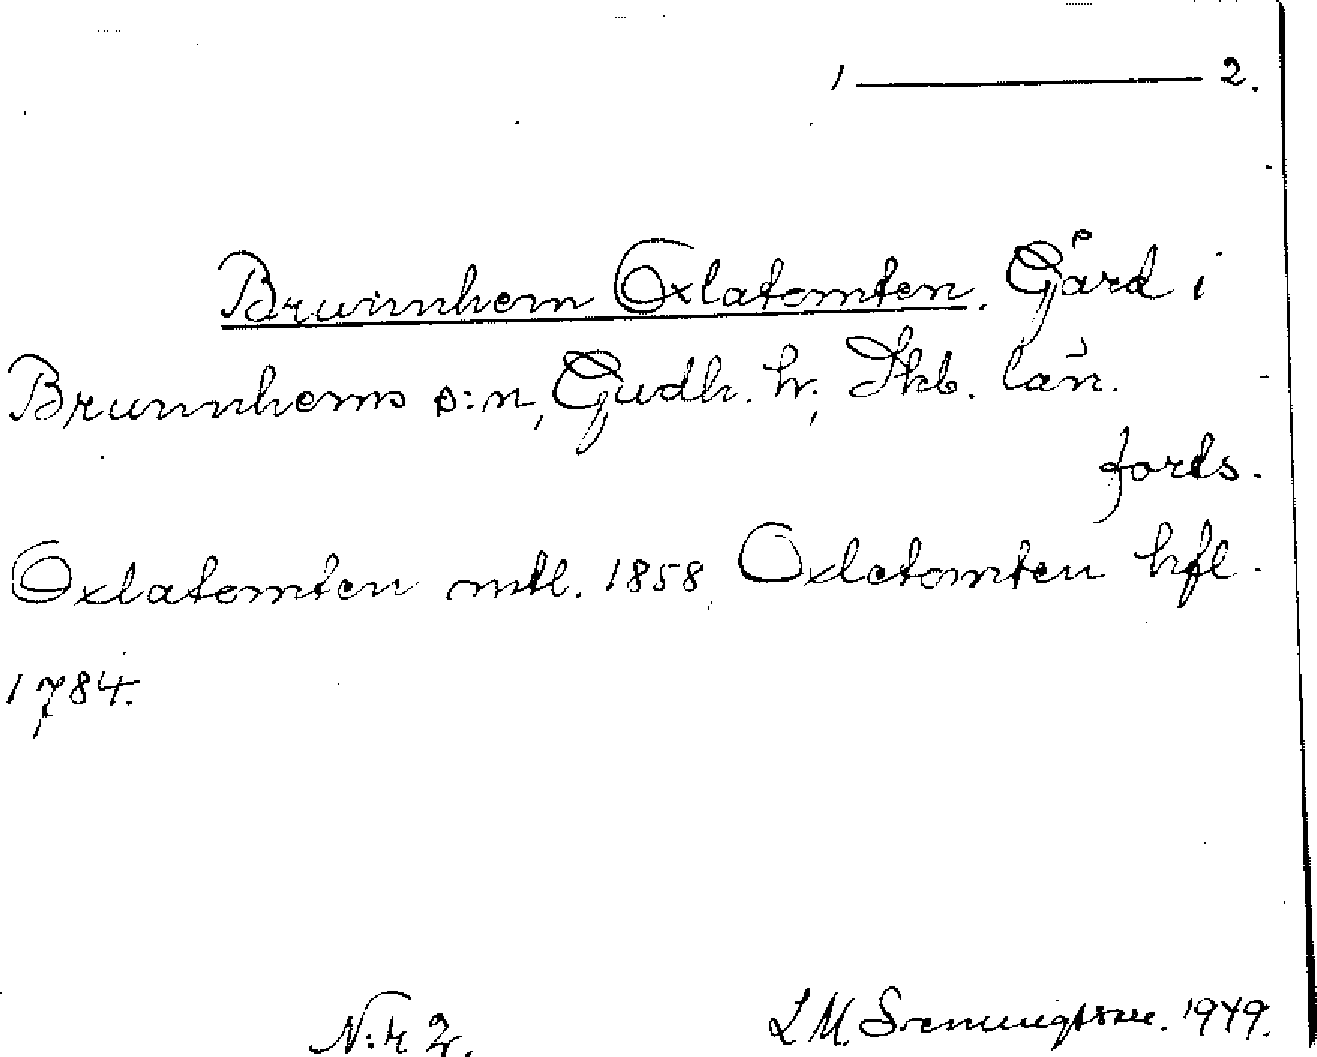 1 ——— 2.
Brunnhem Oxlatomten. Gård i
Brunnhems s:n, Gudh. hr., Skb. län.
fords.
Oxlatomten mtl. 1858, Oxletomten hfl.
1784.
N:r 2. L M. Svenungsson. 1949.